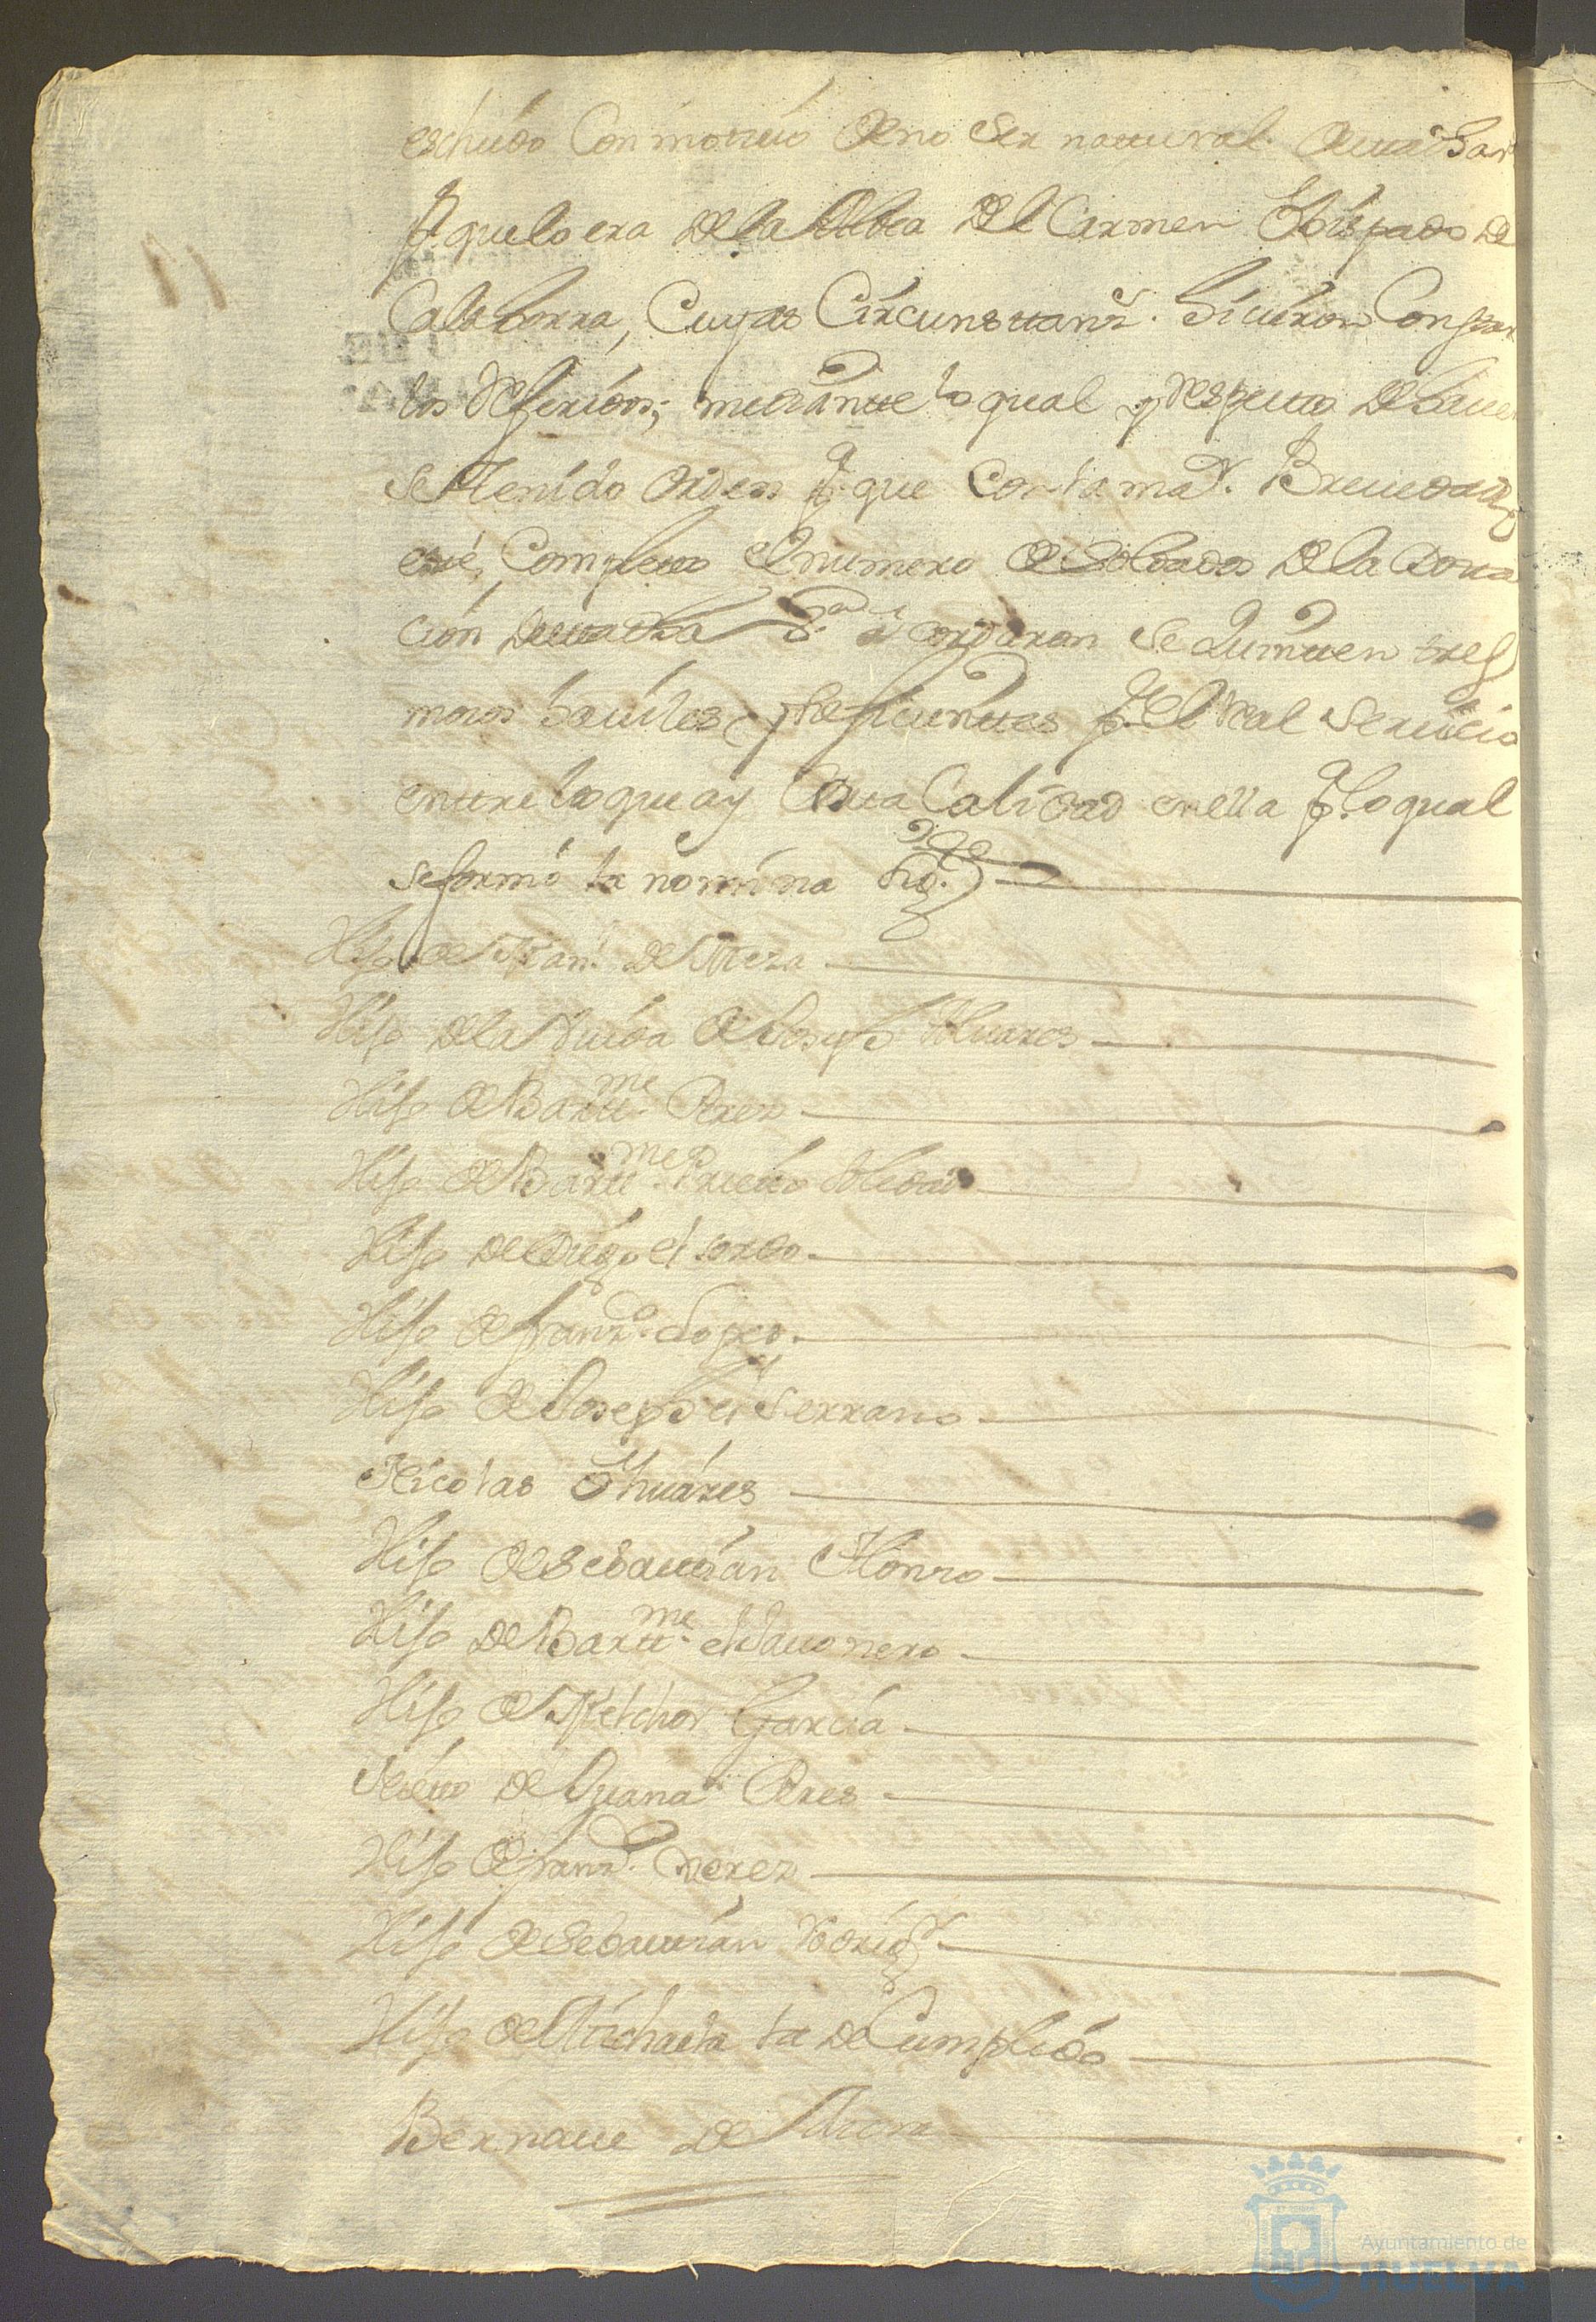 escluído Con motivo de no ser natural de esta
p.ª que lo era de la Aldea del Carmen Obispado de
Calahorra, Cuyas Circunstanz.s hicieron Constar
los referidos; mediante lo qual y respecto de haver
se tenido orden p.ª que con la ma.r Brevedad
esté Completo el numero de soldados de la dota
ción de esta acordaron se quinten tres
mosos haviles y suficientes p.ª el Real Servicio
entre los que ay de esta Calidad en ella p.ª lo qual
se formó la nómina sig.te
Hijo de Fran.co de Meza
Hijo de la Viuda de Joseph Alvares
Hijo de Bartt.me Perez
Hijo de Bartt.me Prieto
Hijo de Diego el sordo
Hijo de Franz.co Lopez
Hijo de Joseph el Serrano
Nicolas Suáres
Hijo de Sebastián Alonzo
Hijo de Bartt.me el Javonero
Hijo de Melchor García
Nieto de Juana Peres
Hijo de Franz.co Perez
Hijo de Sebastián Rodrig.z
Hijo de Michaela la de Cumplido
Bernave de
Ayuntamiento de
HUELVA